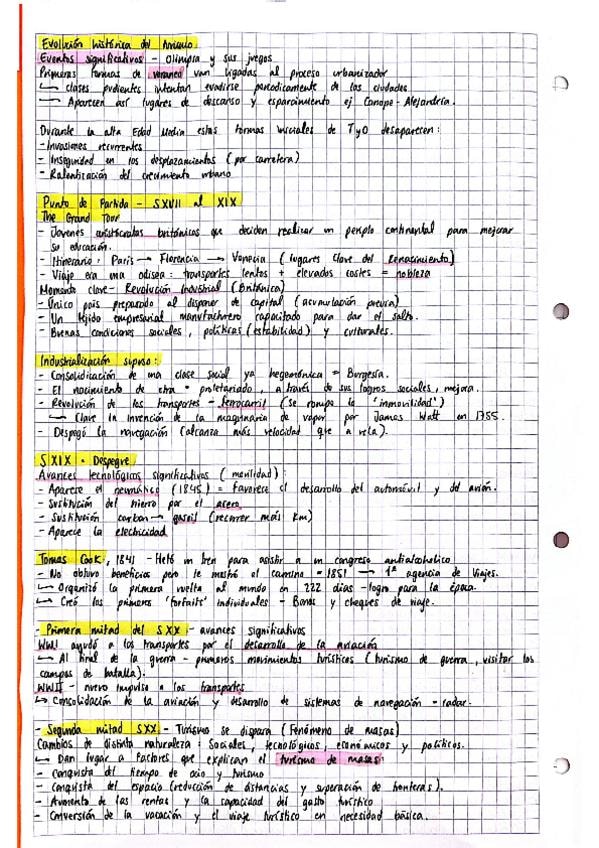 Evolución histórica del turismo
Eventos significativos - Olimpia y sus juegos
Primeras formas de veraneo van ligadas al proceso urbanizador
↳ clases pudientes intentan evadirse periodicamente de las ciudades
→ Aparecen así lugares de descanso y esparcimiento ej Canope - Alejandría.
Durante la alta Edad Media estas formas iniciales de TyO desaparecen:
- Invasiones recurrentes
- Inseguridad en los desplazamientos (por carretera)
- Ralentización del crecimiento urbano
Punto de Partida - SXVII al XIX
The Grand Tour
- Jovenes aristócratas británicos que deciden realizar un periplo continental para mejorar
su educación.
- Itinerario: Paris → Florencia → Venecia (lugares clave del Renacimiento)
- Viaje era una odisea: transportes lentos + elevados costes = nobleza
Momento clave - Revolución Industrial (Británica)
- Único país preparado al disponer de capital (acumulación previa)
- Un tejido empresarial manufacturero capacitado para dar el salto.
- Buenas condiciones sociales, políticas (estabilidad) y culturales.
Industrialización supuso:
- Consolidicación de una clase social ya hegemónica = Burgesía.
- El nacimiento de otra = proletariado, a través de sus logros sociales, mejora.
- Revolución de los transportes - ferrocarril (se rompe la 'inmovilidad')
↳ Clave la invención de la maquinaria de vapor por James Watt en 1755.
- Despegó la navegación (alcanza más velocidad que a vela).
SXIX - Despegue
Avances tecnológicos significativos (movilidad):
- Aparece el neumático (1845) = favorece el desarrollo del automóvil y del avión.
- Sustitución del hierro por el acero
- Sustitución carbon → gasoil (recorrer más km)
- Aparece la electricidad
Tomas Cook, 1841 - Fletó un tren para asistir a un congreso antialcoholico
- No obtuvo beneficios pero le mostró el camino = 1851 → 1ª agencia de Viajes.
↳ Organizó la primera vuelta al mundo en 222 días - logro para la época.
↳ Creó los primeros 'forfaits' individuales - Bonos y cheques de viaje.
- Primera mitad del SXX - avances significativos
WWI ayudó a los transportes por el desarrollo de la aviación
↳ Al final de la guerra - primeros movimientos turísticos (turismo de guerra, visitar los
campos de batalla).
WWII - nuevo impulso a los transportes
↳ Consolidación de la aviación y desarrollo de sistemas de navegación - radar.
- Segunda mitad SXX - Turismo se dispara (Fenómeno de masas)
Cambios de distinta naturaleza: Sociales, tecnológicos, económicos y políticos.
↳ Dan lugar a factores que explican el turismo de masas:
- Conquista del tiempo de ocio y turismo
- Conquista del espacio (reducción de distancias y superación de fronteras).
- Aumento de las rentas y la capacidad del gasto turístico
- Conversión de la vacación y el viaje turístico en necesidad básica.